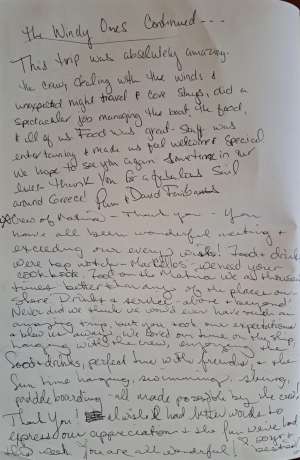 The Windy Ones Continued - - -
This trip was absolutely amazing.
The crew, dealing with the winds &
unexpected night travel & cove stops, did a
spectacular job managing the boat, the food,
& all of us. Food was great - Staff was
entertaining & made us feel welcome & special
We hope to see you again sometime in our
lives. Thank you for a fabulous sail
around Greece! Pam & David
Crew of - Thank you - You
have all been wonderful meeting &
exceeding our every wish! Food & drink
were top notch - we need your
cookbook. Food on the was a thousand
times better than any of the places on
shore. Drinks & service - above & beyond!
Never did we think we would ever have such an
amazing trip, but you took our expectations
& blew us away. We loved our time on the ship,
hanging with the crew, enjoying the
food & drinks, perfect time with friends, & the
fun time hanging, swimming,
paddleboarding - all made possible by the crew.
Thank You! I wish I had better words to
express our appreciation & the fun we've had
this week. You are all wonderful!